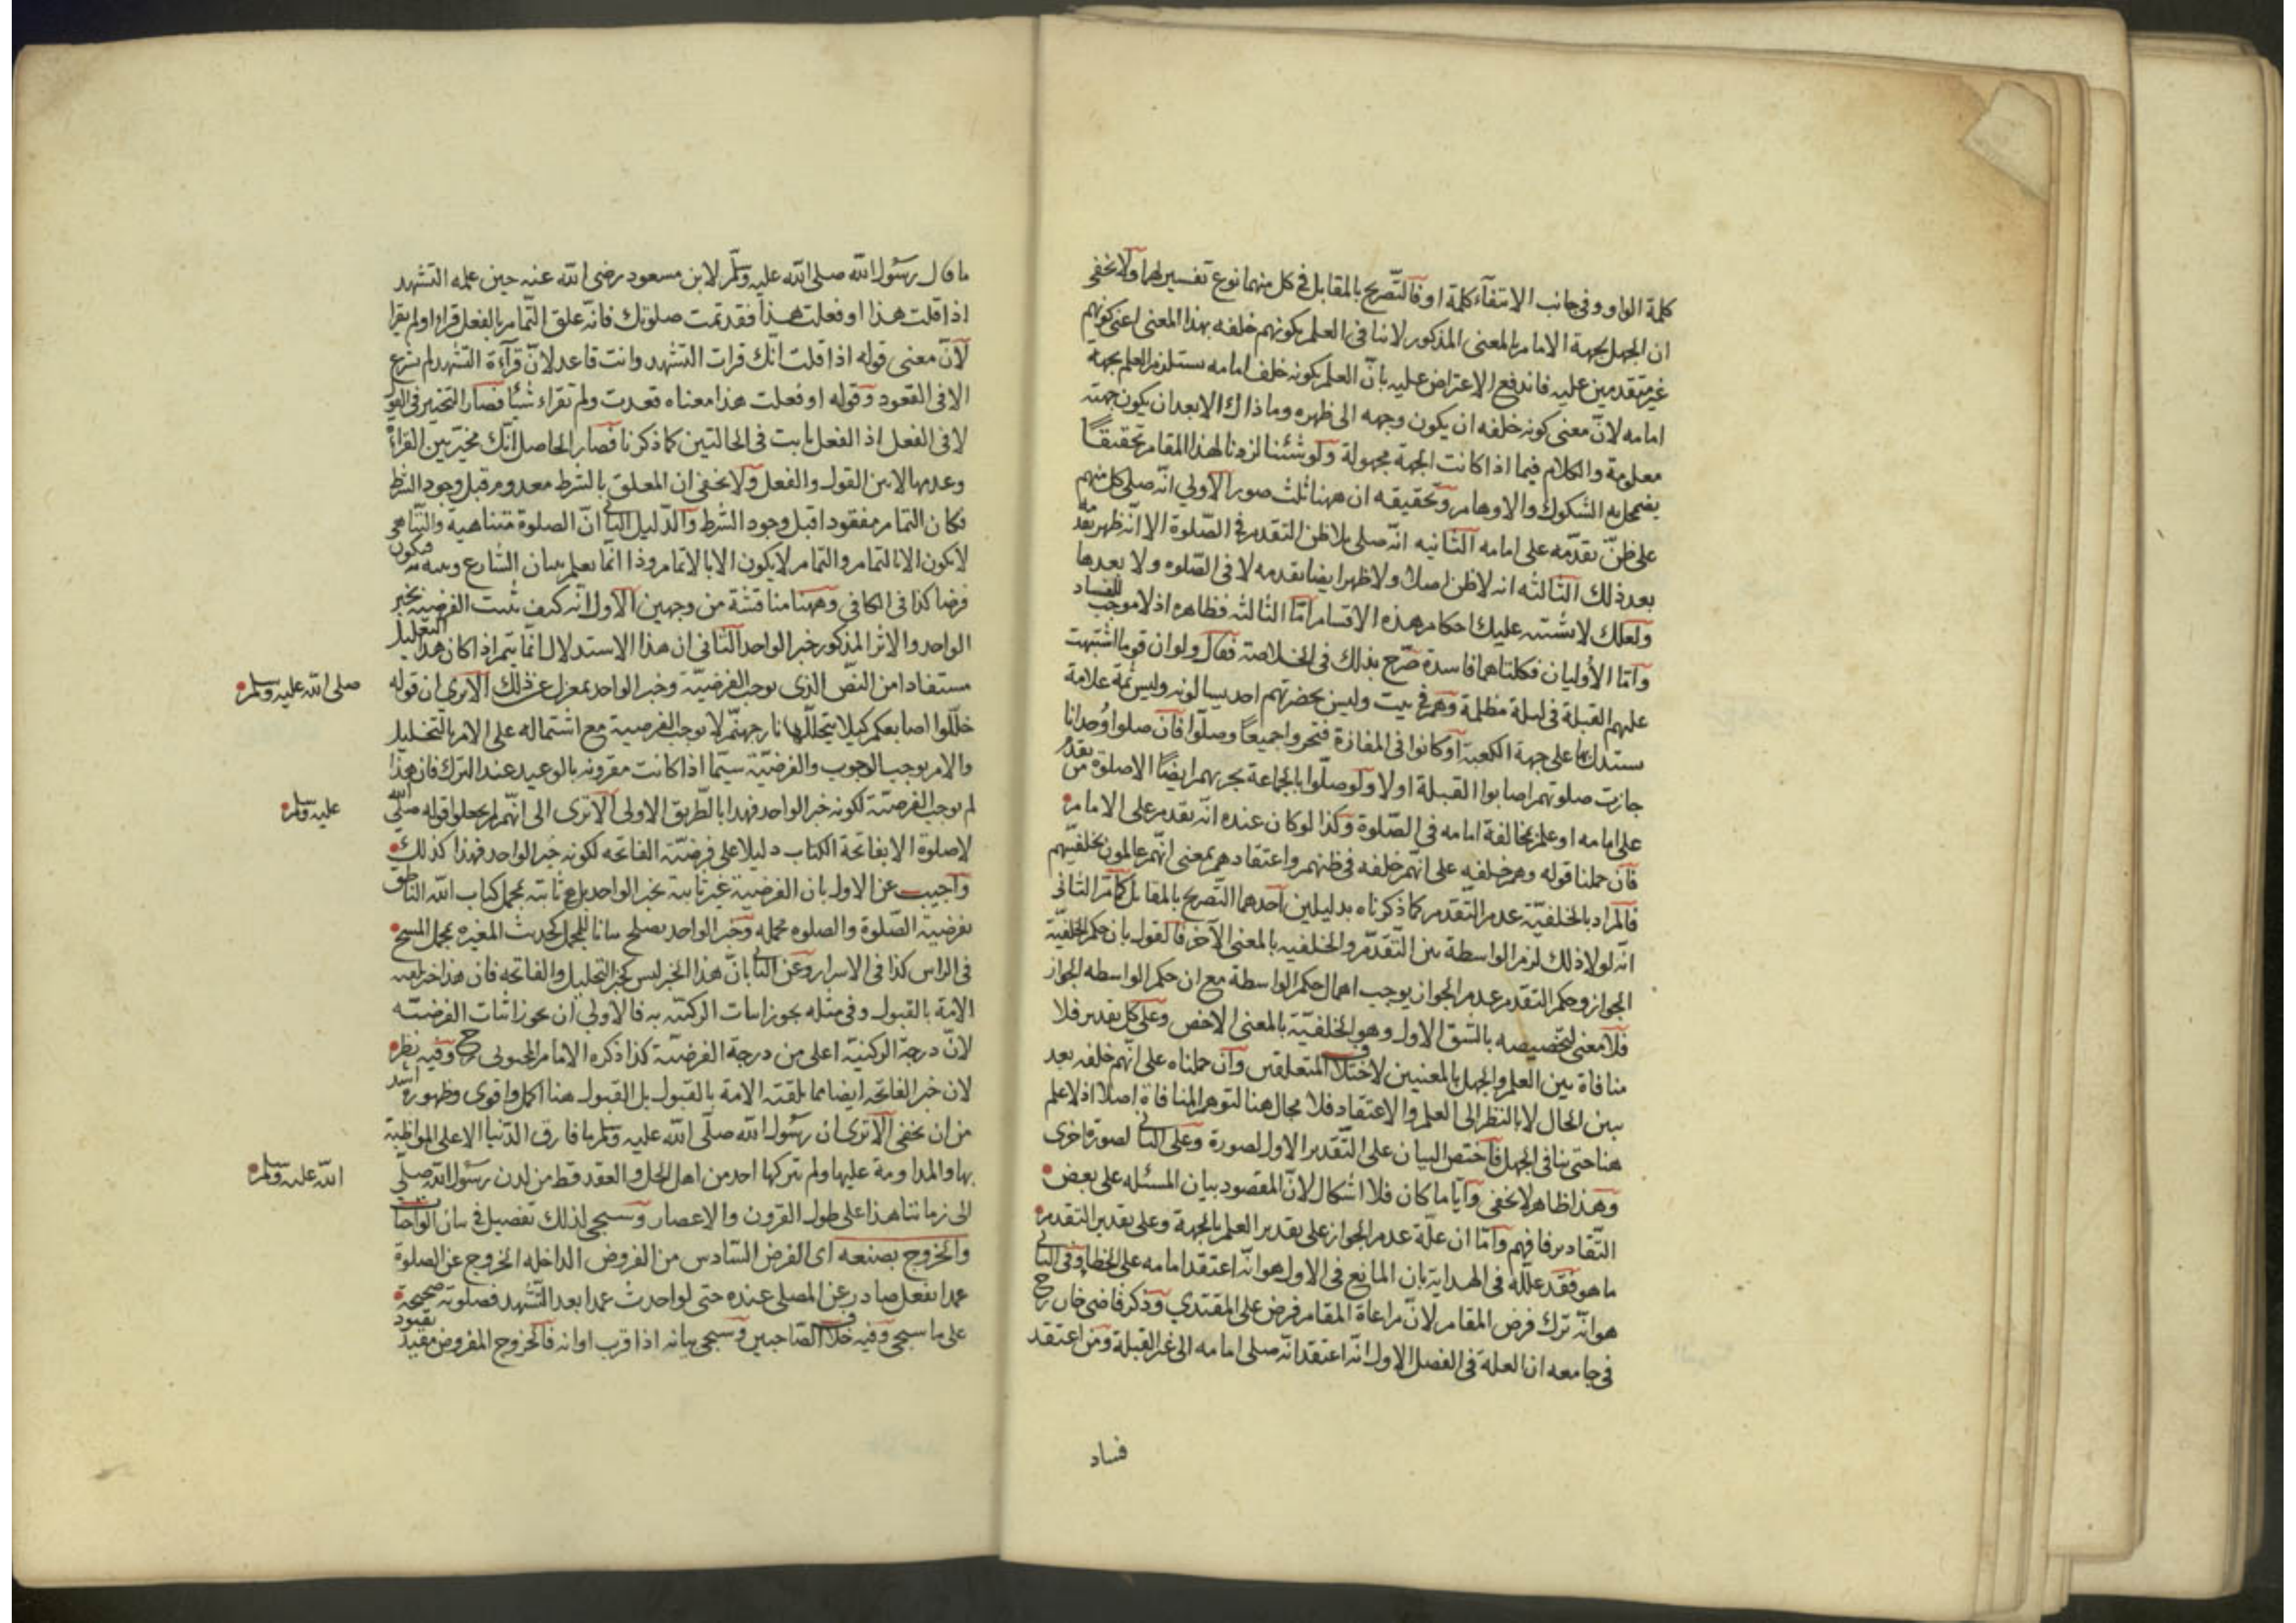 كلمة الواو وفى جانب الانتفآء كلمة او فالتّصريح بالمقابل فى كل منهما نوع تفسير لها ولا يخفى
ان الجهل بجهة الامام بالمعنى المذكور لا ينافى العلم بكونهم خلفه بهذا المعنى اعنى كونهم
غير متقدمين عليه فاندفع الاعتراض عليه بانّ العلم بكونه خلف امامه يستلزم العلم بجهة
امامه لانّ معنى كونه خلفه ان يكون وجهه الى ظهره وما ذاك الا بعد ان يكون جهته
معلومة والكلام فيما اذا كانت الجهة مجهولة ولو شئنا لزدنا لهذا المقام تحقيقًا
يضمحل به الشكوك والاوهام وتحقيقه ان ههنا ثلث صور الاولى انه صلى كل منهم
على ظنّ تقدّمه على امامه الثانيه انّه صلى بلا ظن التقدم فى الصّلوة الا انّه ظهر تقدمه
بعد ذلك الثالثه انه لا ظن اصلا ولا ظهر ايضا تقدمه لا فى الصّلوه ولا بعدها
ولعلك لا يشتبه عليك احكام هذه الاقسام امّا الثالثه فظاهره اذ لا موجب للفساد
وامّا الأوليان فكلتاهما فاسدة صّرح بذلك فى الخلاصة فقال ولو ان قوما اشتبهت
عليهم القبلة فى ليلة مظلمة وهم فى بيت وليس بحضرتهم احد يسالونه وليس ثمة علامة
يستدل بها على جهة الكعبة او كانوا فى المفازة فتحروا جميعًا وصلّوا فان صلوا وُحدانا
جازت صلوتهم اصابوا القبلة اولا ولو صلّوا بالجماعة يجزيهم ايضًا الا صلوة من تقدم
على امامه او علم بمخالفة امامه فى الصّلوة وكذا لو كان عنده انّه تقدم على الامام
فان حملنا قوله وهم خلفه على انّهم خلفه فى ظنهم واعتقادهم بمعنى انّهم عالمون بخلفيّتهم
فالمراد بالخلفيّة عدم التّقدم كما ذكرناه بدليلين آحدهما التّصريح بالمقابل كما مرّ الثانى
انّه لولا ذلك لزم الواسطة بين التّقدّم والخلفيه بالمعنى الآخر فالقول بان حكم الخلفيّة
الجواز وحكم التقدم عدم الجواز يوجب اهمال حكم الواسطة مع ان حكم الواسطه الجواز
فلا معنى لتخصيصه بالشق الاول وهو الخلفيّة بالمعنى الاخص وعلى كل تقدير فلا
منافاة بين العلم والجهل بالمعنيين لاختلاف المتعلقين وان حملناه على انّهم خلفه بعد
بين الحال لا بالنظر الى العلم والاعتقاد فلا مجال هنا لتوهم المنافاة اصلا اذ لا علم
هنا حتى ينافى الجهل فآختص البيان على التّقدير الاول لصورة وعلى الثانى لصورة اخرى
وهذا ظاهر لا يخفى وآيا ما كان فلا اشكال لانّ المقصود بيان المسئله على بعض
التّقادير فافهم وامّا ان علّة عدم الجواز على تقدير العلم بالجهة وعلى تقدير التقدم
ما هو فقد علّله فى الهداية بان المانع فى الاول هو انّه اعتقد امامه على الخطا وفى الثانى
هو انّه ترك فرض المقام لانّ مراعاة المقام فرض على المقتدي وذكر قاضى خان رح
فى جامعه ان العلة فى الفصل الاول انّه اعتقد انّه صلى امامه الى غير القبلة ومن اعتقد
فساد
ما قال رسول الله صلى الله عليه وسلّم لابن مسعود رضى الله عنه حين علمه التشهد
اذا قلت هذا او فعلت هذا فقد تمت صلوتك فانّه علق التّمام بالفعل قرا او لم يقرا
لآنّ معنى قوله اذا قلت انّك قرات التشهد وانت قاعد لانّ قرآءة التشهد لم تشرع
الا فى القعود وقوله او فعلت هذا معناه قعدت ولم تقراء شيًا فصار التخيير فى القول
لا فى الفعل اذ الفعل ثابت فى الحالتين كما ذكرنا فصار الحاصل انّك مخيّر بين القراءة
وعدمها لا بين القول والفعل ولا يخفى ان المعلق بالشرط معدوم قبل وجود الشرط
فكان التمام مفقودا قبل وجود الشرط والدّليل الثانى انّ الصلوة متناهية والتّناهى
لا يكون الا بالتمام والتمام لا يكون الا بالاتمام وذا انّما يعلم ببيان الشارع وبينه به فيكون
فرضا كذا فى الكافى وههنا مناقشة من وجهين الاول انّه كيف تثبت الفرضيه بخبر
الواحد والاثر المذكور خبر الواحد الثانى ان هذا الاستدلال انّما يتم اذا كان هذا التعليل
مستفادا من النّص الذى يوجب الفرضيّة وخبر الواحد بمعزل عن ذلك الا ترى ان قوله صلى الله عليه وسلم
خلّلوا اصابعكم كيلا يتخللّها نار جهنّم لا يوجب الفرضية مع اشتماله على الامر بالتخليل
والامر يوجب الوجوب والفرضيّة سيّما اذا كانت مقرونه بالوعيد عند الترك فان هذا
لم يوجب الفرضيّة لكونه خبر الواحد فهذا بالطّريق الاولى الا ترى الى انّهم لم يجعلوا قوله صلّى الله عليه وسلم
لا صلوة الا بفاتحة الكتاب دليلا على فرضيّة الفاتحه لكونه خبر الواحد فهذا كذلك
وآجيب عن الاول بان الفرضية غير ثابتة بخبر الواحد بل هى ثابته بمجمل كتاب الله الناطق
بفرضية الصّلوة والصلوه مجمله وخبر الواحد يصلح بيانا للمجمل كحديث المغيره بمجمل المسح
فى الراس كذا فى الاسرار وعن الثانى بانّ هذا الخبر ليس كخبر التخليل والفاتحه فان هذا خبر تلقته
الامة بالقبول وفى مثله يجوز اثبات الركنيّه به فالاولى ان يجوز اثبات الفرضيّه
لانّ درجة الركنيّة اعلى من درجة الفرضيّة كذا ذكره الامام المحبوبى رح وفيه نظر
لان خبر الفاتحه ايضا مما تلقته الامة بالقبول بل القبول هنا اكمل واقوى وظهوره اشد
من ان يخفى الا ترى ان رسول الله صلّى الله عليه وسلم ما فارق الدّنيا الا على المواظبة
بها والمداومة عليها ولم يتركها احد من اهل الحل والعقد قط من لدن رسول الله صلّى الله عليه وسلم
الى زماننا هذا على طول القرون والاعصار وسيجى لذلك تفصيل فى بيان الواجبات
والخروج بصنعه اى الفرض السّادس من الفروض الداخله الخروج عن الصلوة
عمدا بفعل صادر عن المصلى عنده حتى لو احدث عمدا بعد التّشهد فصلوته صحيحة
على ما سيجى وفيه خلاف الصّاحبين وسيجى بيانه اذا قرب اوانه فالخروج المفروض مقيد بقيود